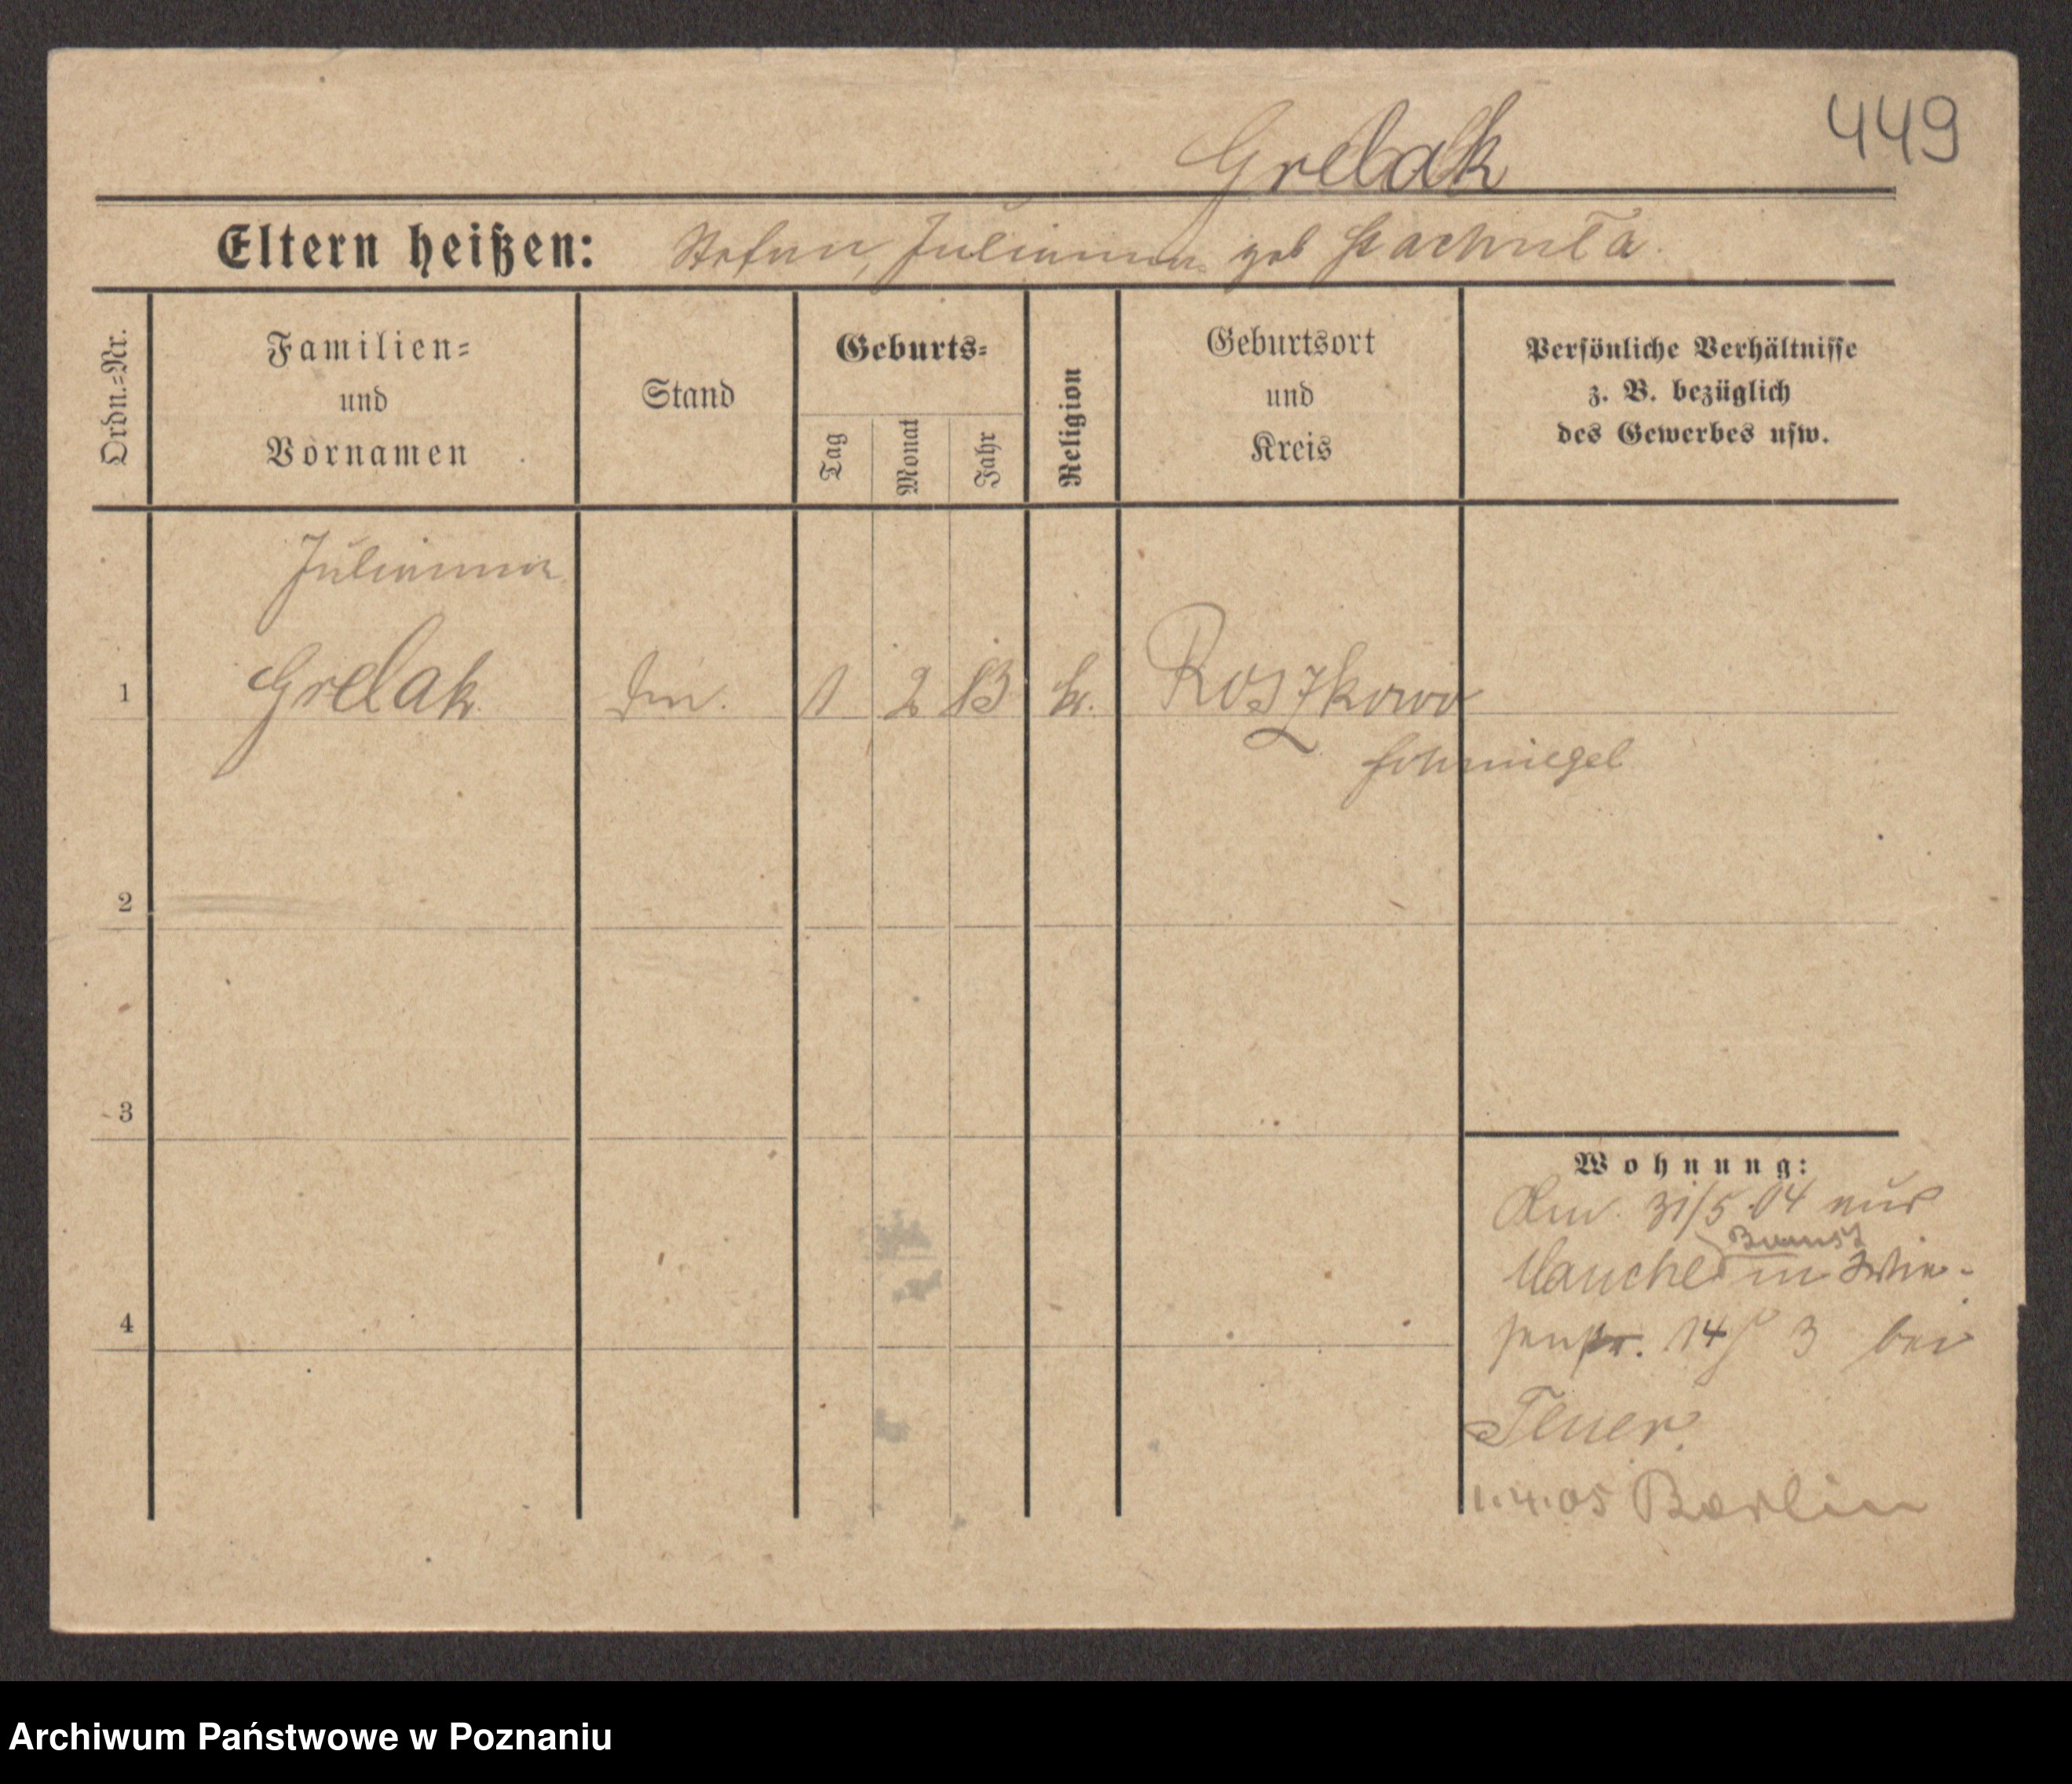 449
Grelak
Eltern heißen: Stefan, Julianna geb Pachula
Ordn.=Nr.
Familien=
und
Vornamen
Stand
Geburts=
Tag
Monat
Jahr
Religion
Geburtsort
und
Kreis
Persönliche Verhältnisse
z. B. bezüglich
des Gewerbes usw.
Julianna
1 Grelak 1 2 83 k. Roszkowo
Schmiegel
2
3
4
Wohnung:
31/5 04 aus
Mauche in
14 3 bei
1.4.05 Berlin
Archiwum Państwowe w Poznaniu